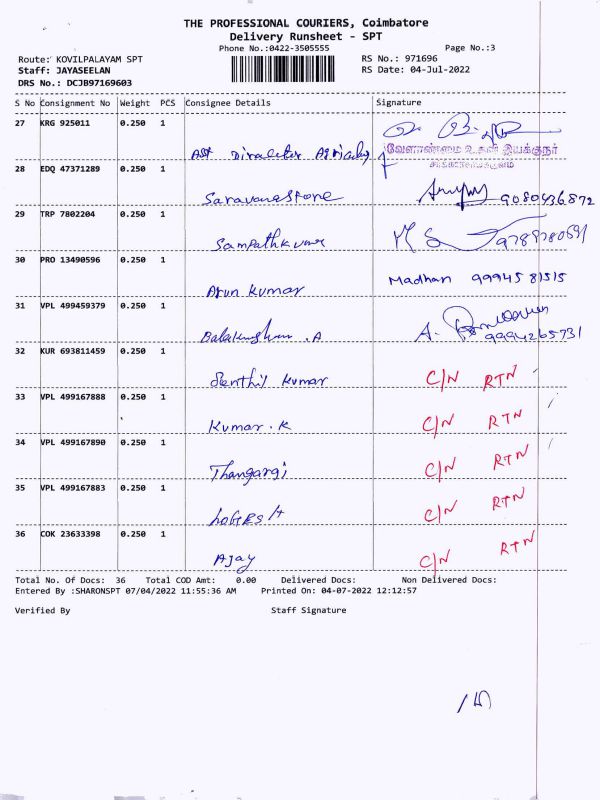 THE PROFESSIONAL COURIERS, Coimbatore
Delivery Runsheet - SPT
Phone No.:0422-3505555 Page No.:3
Route: KOVILPALAYAM SPT RS No.: 971696
Staff: JAYASEELAN RS Date: 04-Jul-2022
DRS No.: DCJB97169603
S No Consignment No Weight PCS Consignee Details Signature
27 KRG 925011 0.250 1
Asst Director Agriculy வேளாண்மை உதவி இயக்குநர்
28 EDQ 47371289 0.250 1
Saravanastore 9080436872
29 TRP 7802204 0.250 1
Sampathkumar M S
30 PRO 13490596 0.250 1
Arun Kumar Madhan 99945 81515
31 VPL 499459379 0.250 1
A. 9994265731
32 KUR 693811459 0.250 1
Senthil Kumar C/N RTN
33 VPL 499167888 0.250 1
Kumar.K C/N RTN
34 VPL 499167890 0.250 1
Thangaraj C/N RTN
35 VPL 499167883 0.250 1
LOGESH C/N RTN
36 COK 23633398 0.250 1
Ajay C/N RTN
Total No. Of Docs: 36 Total COD Amt: 0.00 Delivered Docs: Non Delivered Docs:
Entered By :SHARONSPT 07/04/2022 11:55:36 AM Printed On: 04-07-2022 12:12:57
Verified By Staff Signature